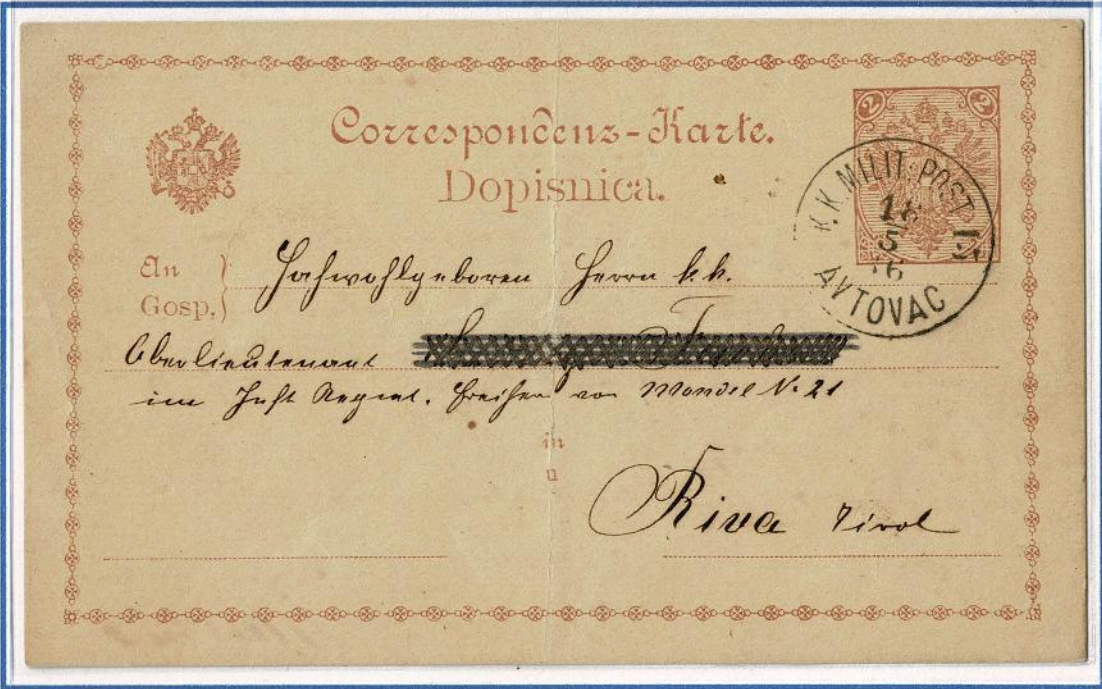 Correspondenz-Karte.
Dopisnica.
2 2
K. K. MILIT. POST
5
AVTOVAC
An
Gosp.
Hochwohlgeboren Herrn k.k.
Oberlieutenant
im Inft Regmt. Freiherr von Mondel No 21
in
u
Riva Tirol